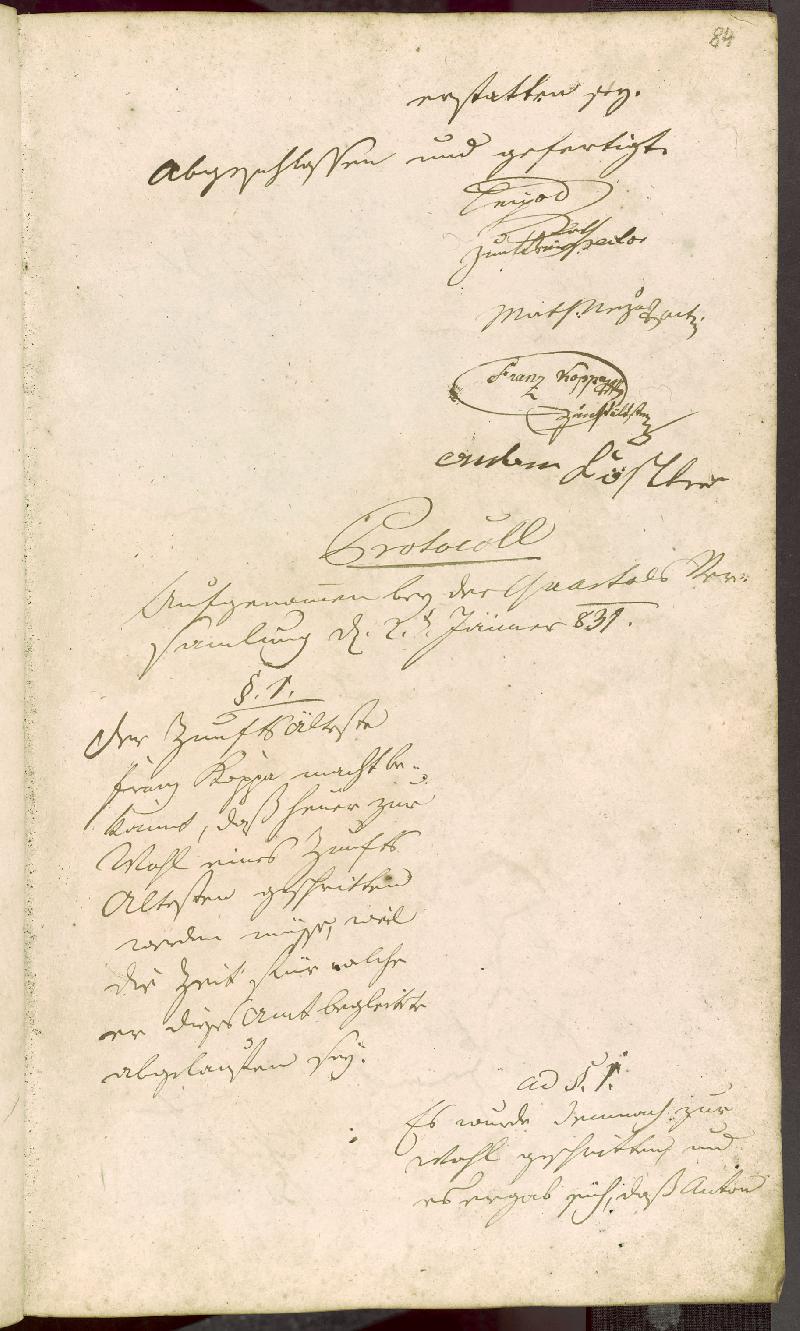 84
erstatten sey.
Abgeschlossen und gefertigt.
Zunftinspector
Math
Franz Koppa
Zunftältester
Anton Köstler
Protocoll
Aufgenommen bey der Quartals Ver-
samlung d. 2.t. Jänner 831.
§. 1.
Der Zunftsälteste
Franz Koppa macht be-
kannt, daß heuer zur
Wahl eines Zunfts
Ältesten geschritten
werden müsse, weil
die Zeit für welche
er dieses Amt begleitete
abgelaufen sey.
ad §. 1.
Es wurde demnach zur
Wahl geschritten, und
es ergab sich, daß Anton